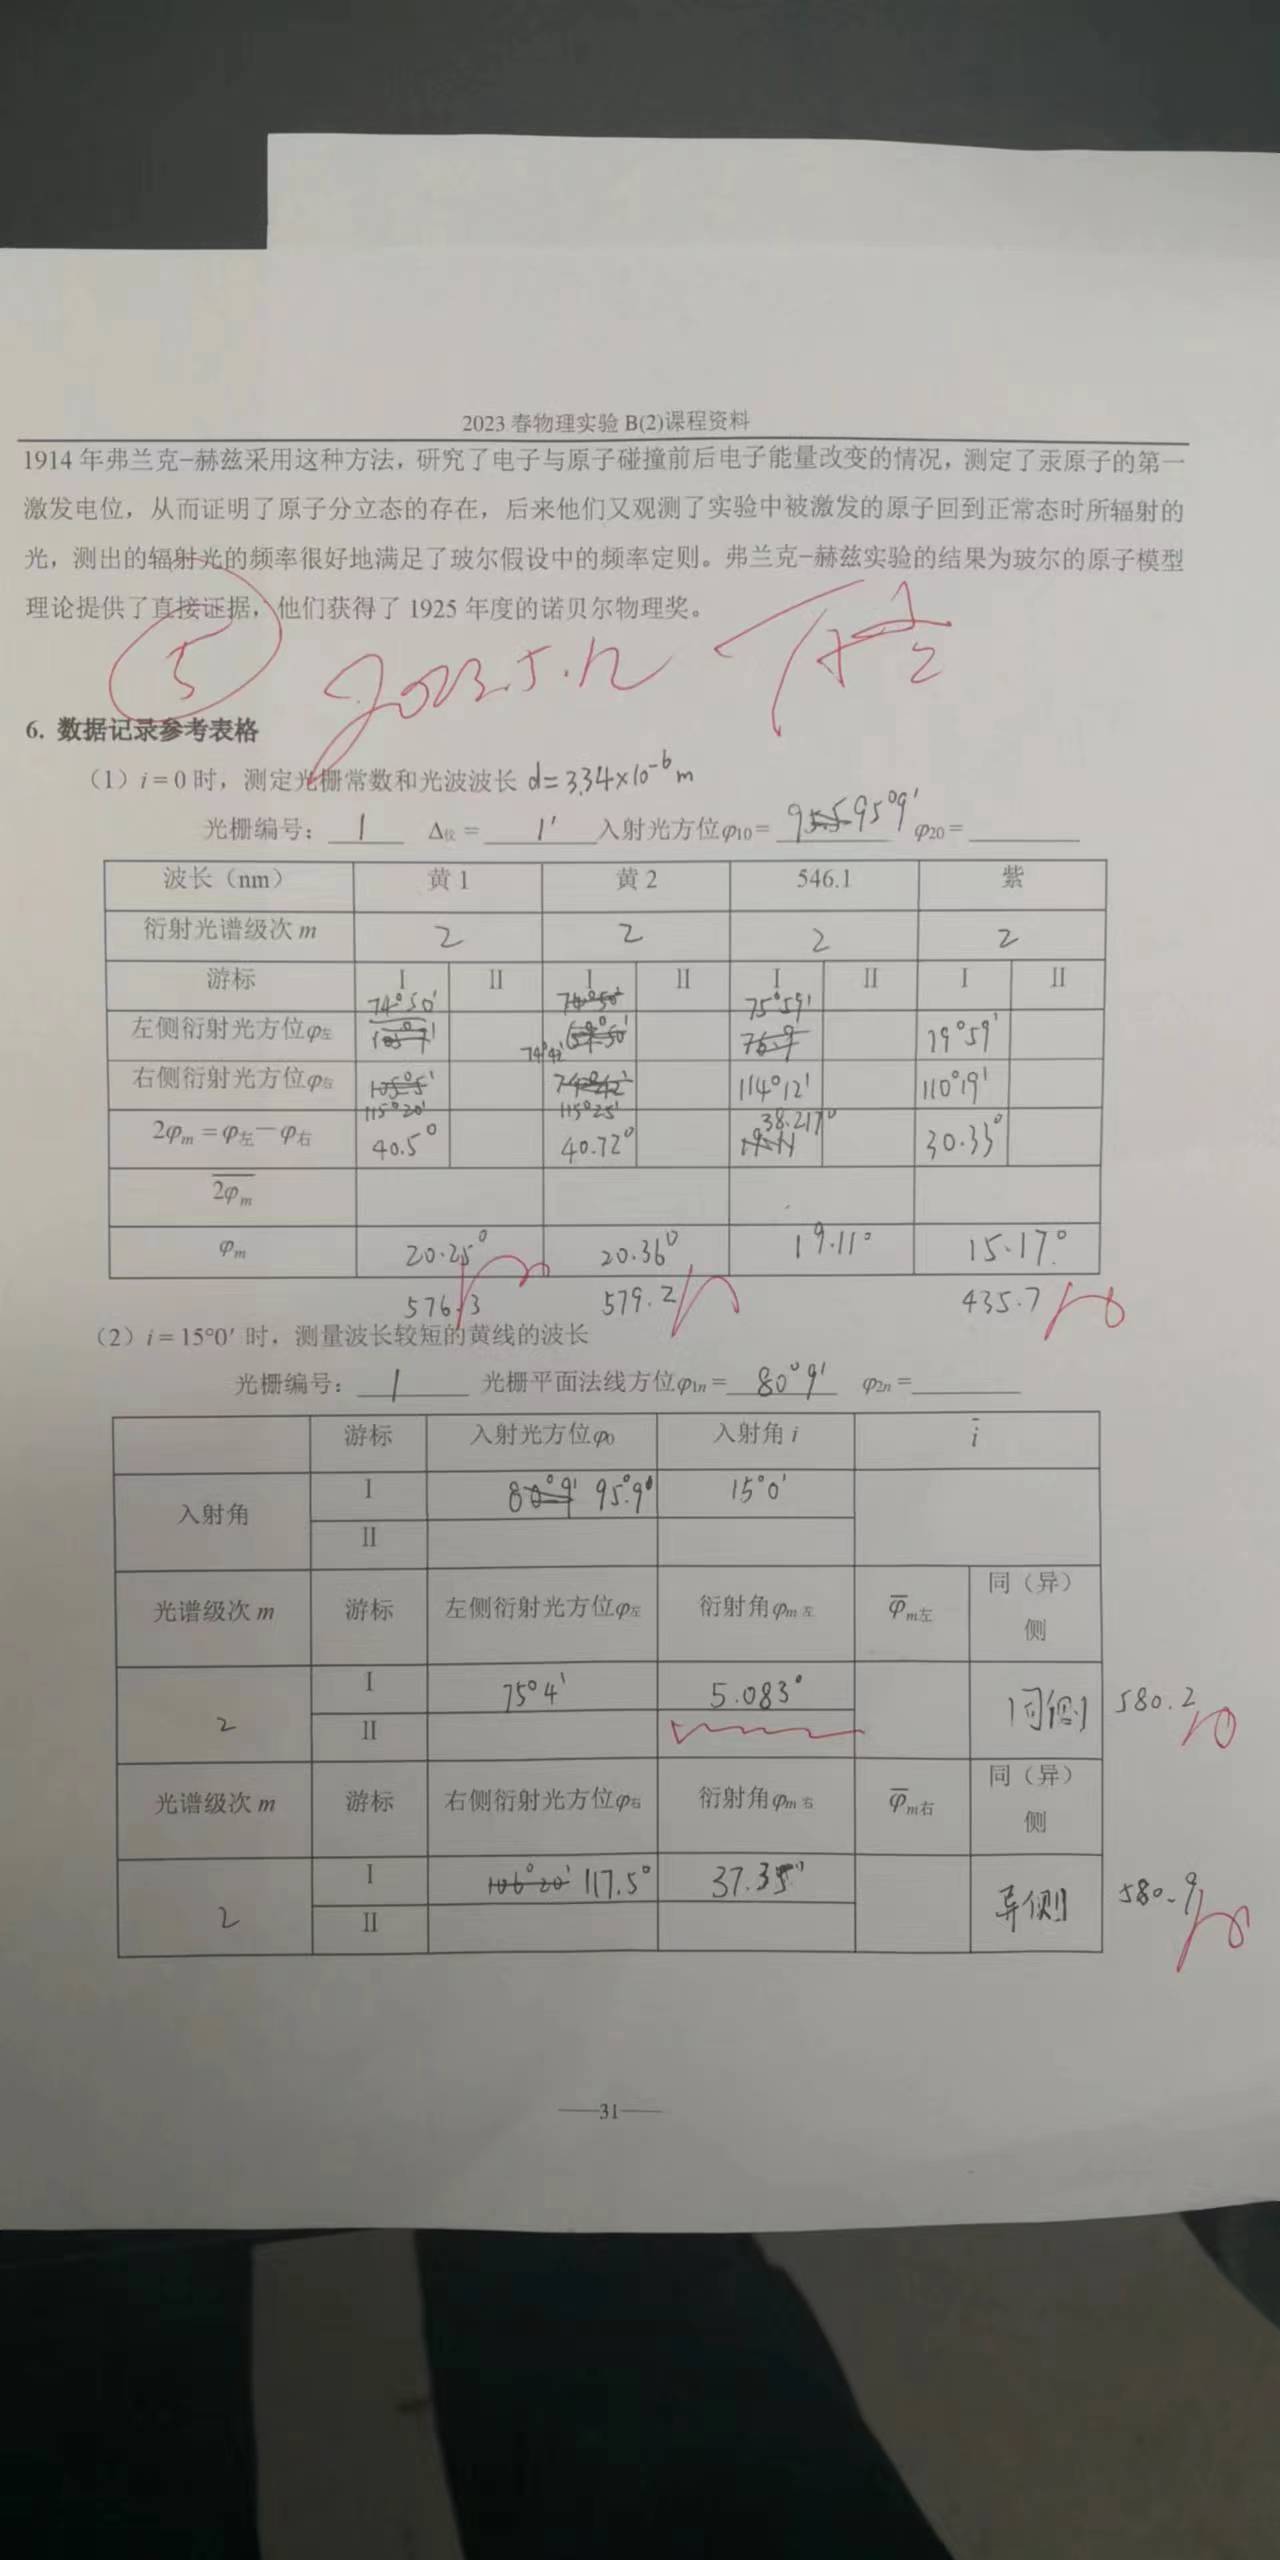 2023 春物理实验 B(2)课程资料
1914 年弗兰克-赫兹采用这种方法，研究了电子与原子碰撞前后电子能量改变的情况，测定了汞原子的第一
激发电位，从而证明了原子分立态的存在，后来他们又观测了实验中被激发的原子回到正常态时所辐射的
光，测出的辐射光的频率很好地满足了玻尔假设中的频率定则。弗兰克-赫兹实验的结果为玻尔的原子模型
理论提供了直接证据，他们获得了 1925 年度的诺贝尔物理奖。
5 2023.5.12
6. 数据记录参考表格
（1）i = 0 时，测定光栅常数和光波波长 d=3.34×10⁻⁶m
光栅编号：1 Δ仪 = 1′ 入射光方位φ10 = 95°9′ φ20 =
波长（nm） 黄 1 黄 2 546.1 紫
衍射光谱级次 m 2 2 2 2
游标 I II I II I II I II
左侧衍射光方位φ左 74°50′ 74°42′ 75°59′ 79°59′
右侧衍射光方位φ右 115°20′ 115°25′ 114°12′ 110°19′
2φm = φ左－φ右 40.5° 40.72° 38.217° 30.33°
2φm
φm 20.25° 20.36° 19.11° 15.17°
576.3 579.2 435.7
（2）i = 15°0′ 时，测量波长较短的黄线的波长
光栅编号：1 光栅平面法线方位φ1n = 80°9′ φ2n =
游标 入射光方位φ0 入射角 i i
入射角 I 80°9′ 95°9′ 15°0′
II
光谱级次 m 游标 左侧衍射光方位φ左 衍射角φm左 φm左 同（异）侧
2 I 75°4′ 5.083° 同侧 580.2
II
光谱级次 m 游标 右侧衍射光方位φ右 衍射角φm右 φm右 同（异）侧
2 I 106°20′ 117.5° 37.35° 异侧 580.9
II
—31—